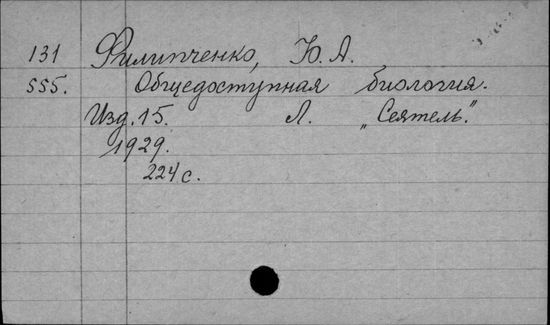 131 Филипченко, Ю. А.
555. Общедоступная биология.
Изд. 15. Л. „Сеятель."
1929.
224 с.